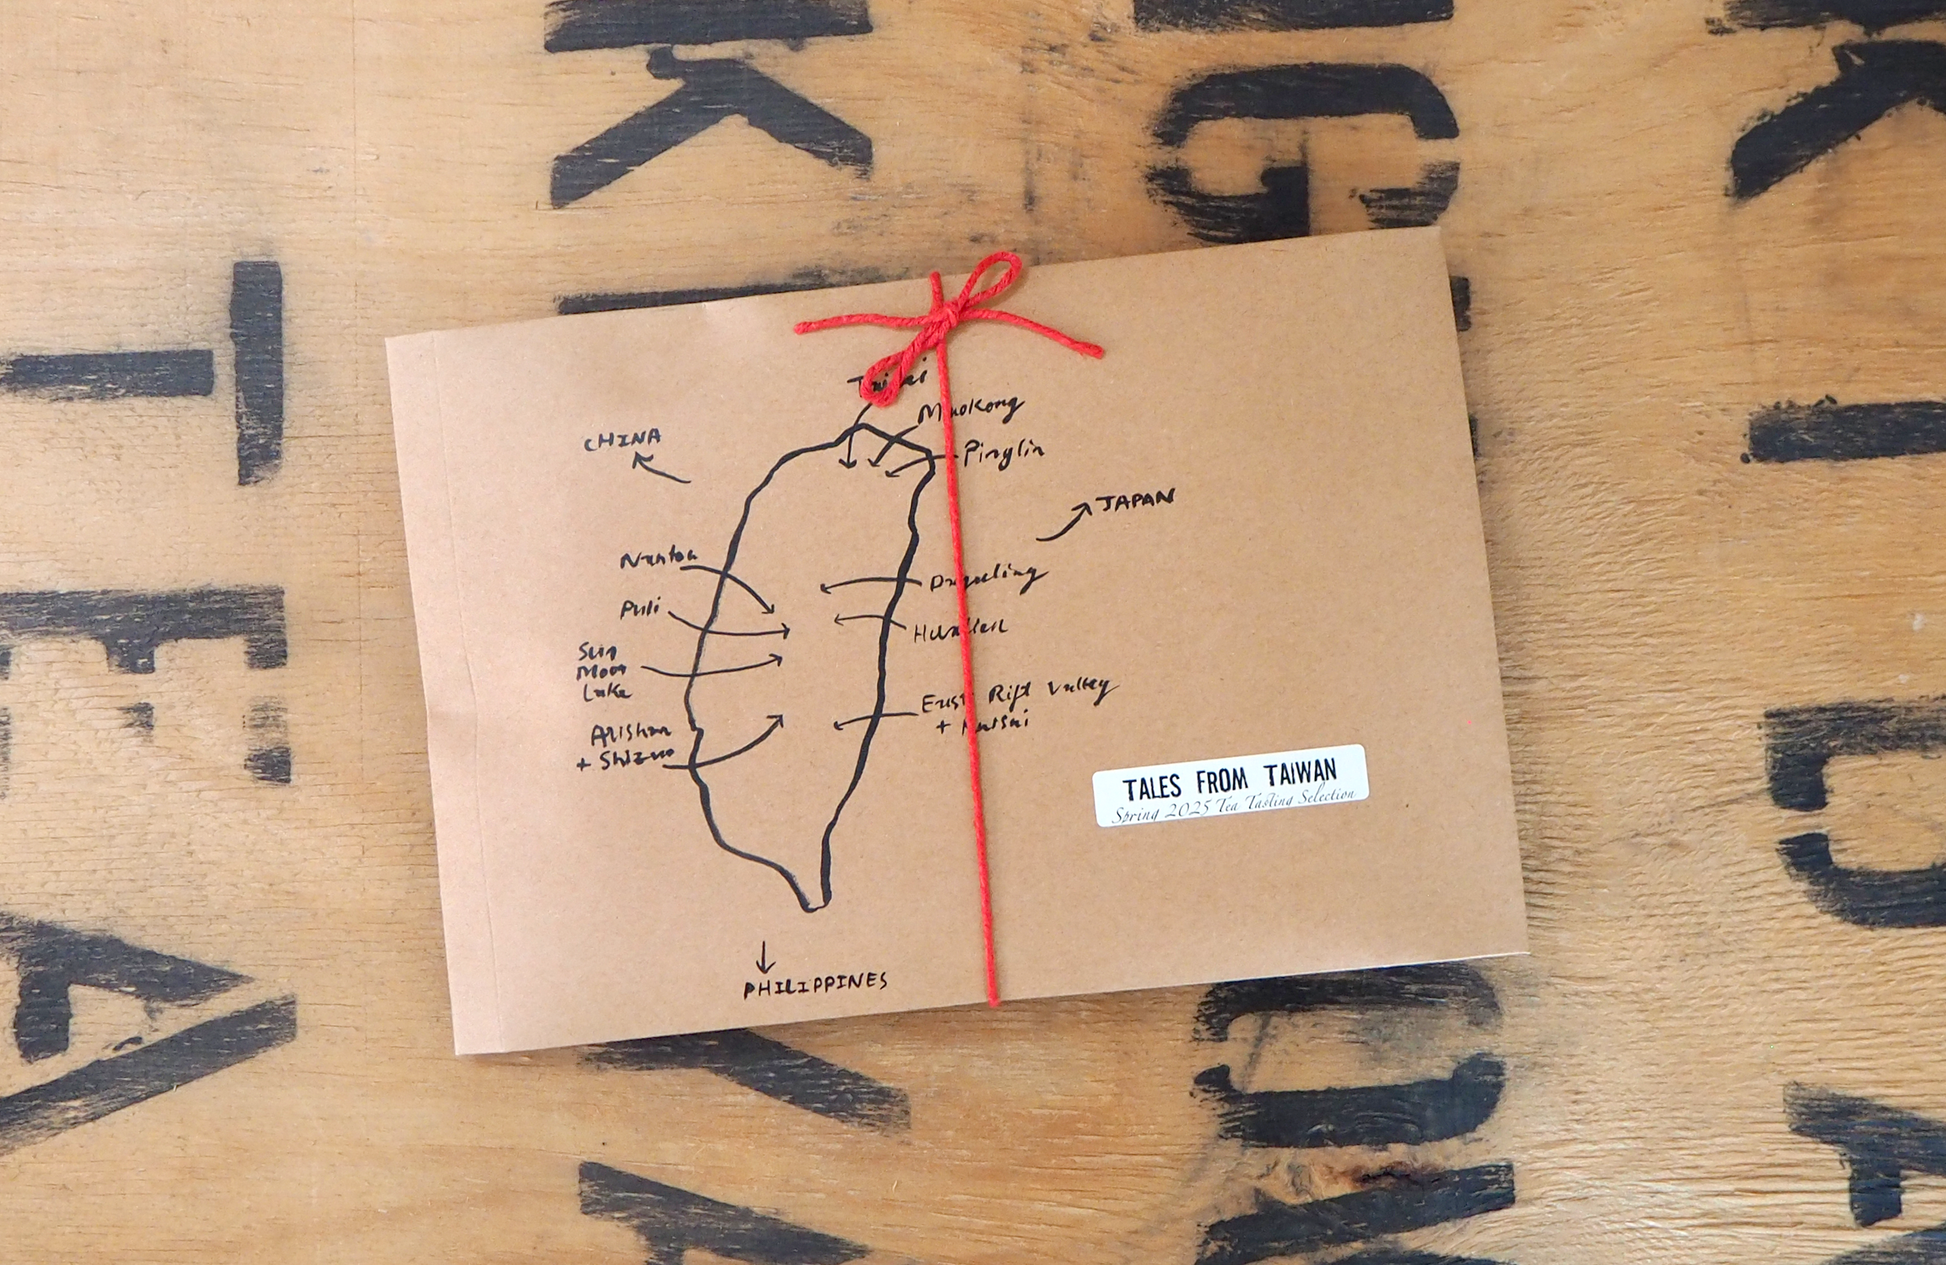 CHINA
Maokong
Pinglin
JAPAN
Nantou
Puli
Sun
Moon
Lake
Alishan
+ Shizuo
Dayuling
Hualien
East Rift Valley
+
PHILIPPINES
TALES FROM TAIWAN
Spring 2025 Tea Tasting Selection